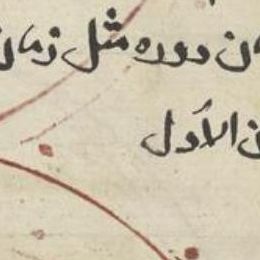 ن دوره مثل زمان
ن الأول